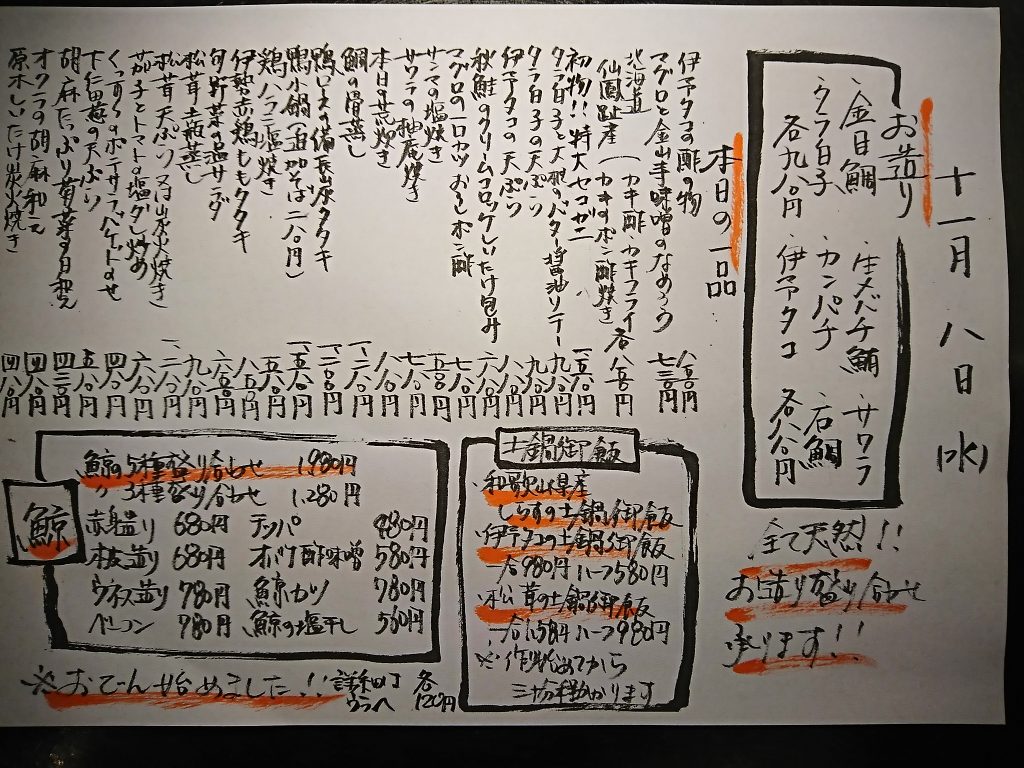 十一月八日(水)
お造り
・金目鯛
・生メバチ鮪
・サワラ
・タラ白子
・カンパチ
・石鯛
各九八〇円
・伊予タコ
各八八〇円
全て天然!!
お造り盛り合せ
承ります!!
本日の一品
伊予タコの酢の物 八五〇円
マグロと金山寺味噌のなめろう 七三〇円
北海道
仙鳳趾産(カキ酢・カキフライ
カキのポン酢焼き 各八五〇円
初物!!特大セコガニ
タラ白子と大根のバター醤油ソテー
タラ白子の天ぷら
伊予タコの天ぷら
秋鮭のクリームコロッケしいたけ包み
マグロの一口カツおろしポン酢
サンマの塩焼き
サワラの柚庵焼き
本日の荒炊き
鯛の骨蒸し
鴨ロースの備長炭タタキ
鴨小鍋(追加そば二八〇円)
鶏ハラミ塩焼き
伊勢赤鶏ももタタキ
旬野菜の温サラダ
松茸土瓶蒸し
松茸天ぷら又は炭火焼き
茄子とトマトの塩ダレ炒め
くんすくのポテサラバケットのせ
下仁田葱の天ぷら 五八〇円
胡麻たっぷり春菊の白和え 四三〇円
オクラの胡麻和え 四八〇円
原木しいたけ炭火焼き 四八〇円
土鍋御飯
・和歌山県産
しらすの土鍋御飯
・伊予タコの土鍋御飯
一合980円 ハーフ580円
・松茸の土鍋御飯
一合1,58円 ハーフ980円
※作り始めてから
三十分程かかります
鯨
鯨の5種盛り合わせ 1,980円
〃3種盛り合わせ 1,280円
赤身造り 680円 テッパ 880円
本皮造り 680円 オバケ酢味噌 580円
ウネス造り 780円 鯨カツ 780円
ベーコン 780円 鯨の塩干し 580円
※おでん始めました!!詳細は
ウラへ
各
120円